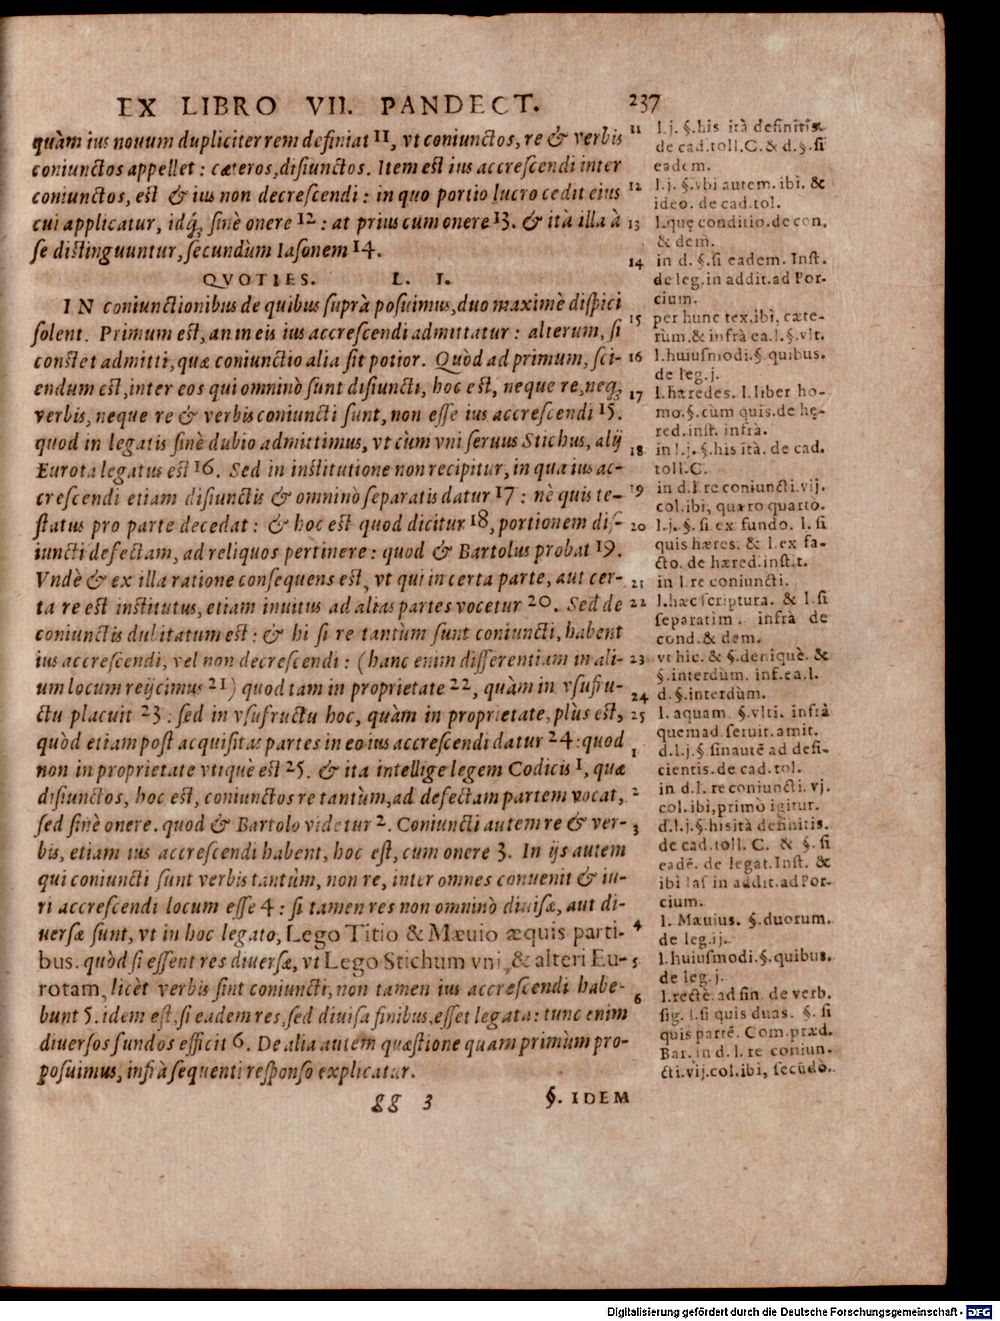 EX LIBRO VII. PANDECT. 237
quàm ius nouum dupliciter rem definiat 11, vt coniunctos, re & verbis
coniunctos appellet: cæteros, disiunctos. Item est ius accrescendi inter
coniunctos, est & ius non decrescendi: in quo portio lucro cedit eius
cui applicatur, idq́; sinè onere 12: at prius cum onere 13. & ità illa à
se distinguuntur, secundùm Iasonem 14.
QVOTIES. L. I.
IN coniunctionibus de quibus suprà posuimus, duo maximè dispici
solent. Primum est, an in eis ius accrescendi admittatur: alterum, si
constet admitti, quæ coniunctio alia sit potior. Quòd ad primum, sci-
endum est, inter eos qui omninò sunt disiuncti, hoc est, neque re, neq;
verbis, neque re & verbis coniuncti sunt, non esse ius accrescendi 15.
quod in legatis sinè dubio admittimus, vt cùm vni seruus Stichus, alij
Eurota legatus est 16. Sed in institutione non recipitur, in qua ius ac-
crescendi etiam disiunctis & omninò separatis datur 17: nè quis te-
status pro parte decedat: & hoc est quod dicitur 18, portionem dis-
iuncti defectam, ad reliquos pertinere: quod & Bartolus probat 19.
Vndè & ex illa ratione consequens est, vt qui in certa parte, aut cer-
ta re est institutus, etiam inuitus ad alias partes vocetur 20. Sed de
coniunctis dubitatum est: & hi si re tantùm sunt coniuncti, habent
ius accrescendi, vel non decrescendi: (hanc enim differentiam in ali-
um locum reijcimus 21) quod tam in proprietate 22, quàm in vsufru-
ctu placuit 23: sed in vsufructu hoc, quàm in proprietate, plùs est,
quòd etiam post acquisitas partes in eo ius accrescendi datur 24: quod
non in proprietate vtiquè est 25. & ita intellige legem Codicis 1, quæ
disiunctos, hoc est, coniunctos re tantùm, ad defectam partem vocat,
sed sinè onere. quod & Bartolo videtur 2. Coniuncti autem re & ver-
bis, etiam ius accrescendi habent, hoc est, cum onere 3. In ijs autem
qui coniuncti sunt verbis tantùm, non re, inter omnes conuenit & iu-
ri accrescendi locum esse 4: si tamen res non omninò diuisæ, aut di-
uersæ sunt, vt in hoc legato, Lego Titio & Mæuio æquis parti-
bus. quòd si essent res diuersæ, vt Lego Stichum vni, & alteri Eu-
rotam, licèt verbis sint coniuncti, non tamen ius accrescendi habe-
bunt 5. idem est, si eadem res, sed diuisa finibus, esset legata: tunc enim
diuersos fundos efficit 6. De alia autem quæstione quam primùm pro-
posuimus, infrà sequenti responso explicatur.
gg 3 §. IDEM
11 l.j. §.his ità definitis.
de cad.toll.C. & d.§.si
eadem.
12 l.j. §.vbi autem. ibì. &
ideo. de cad.tol.
13 l.quę conditio.de con.
& dem.
14 in d. §.si eadem. Inst.
de leg.in addit.ad Por-
cium.
15 per hunc tex.ibì, cæte-
rùm.& infrà ea.l.§.vlt.
16 l.huiusmodi.§.quibus.
de leg.j.
17 l.hæredes. l.liber ho-
mo.§.cùm quis.de hę-
red.inst. infrà.
18 in l.j. §.his ità. de cad.
toll.C.
19 in d.l.re coniuncti.vij.
col.ibì, quæro quartò.
20 l.j. §.si ex fundo. l.si
quis hæres. & l.ex fa-
cto. de hæred.inst.t.
21 in l.re coniuncti.
22 l.hæc scriptura. & l.si
separatim. infrà de
cond.& dem.
23 vt hîc. & §.deniquè. &
§.interdùm. inf.ea.l.
24 d. §.interdùm.
25 l. aquam. §.vlti. infrà
quemad.seruit.amit.
1 d.l.j.§ sinautē ad defi-
cientis.de cad.tol.
2 in d.l. re coniuncti. vj.
col.ibì,primò igitur.
3 d.l.j.§.hisità definitis.
de cad.toll. C. & §.si
eadē. de legat.Inst. &
ibi Ias in addit.ad Por-
cium.
4 l. Mæuius. §.duorum.
de leg.ij.
5 l.huiusmodi.§.quibus.
de leg.j.
6 l.rectè.ad fin de verb.
sig. l.si quis duas. §.si
quis partē. Com.præd.
Bar.in d.l.re coniun-
cti.vij.col.ibì, secūdò.
Digitalisierung gefördert durch die Deutsche Forschungsgemeinschaft - DFG